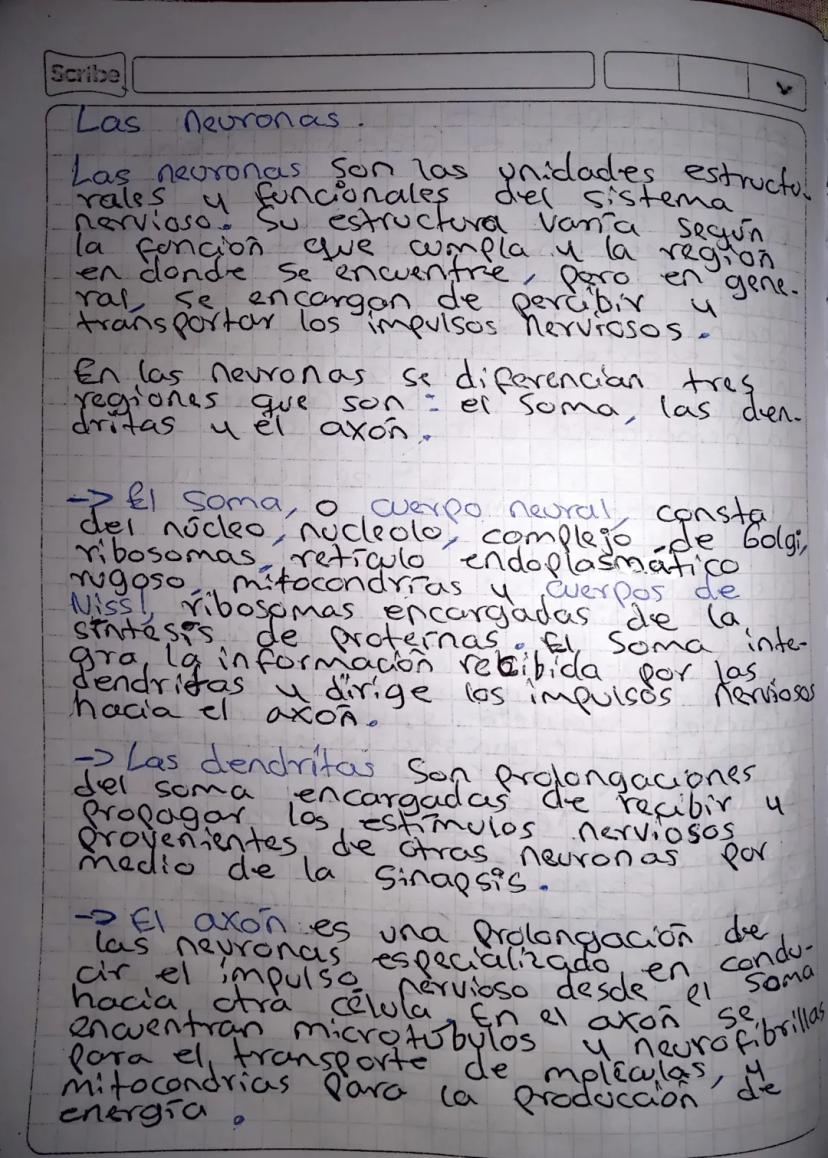 Scribe
Las neuronas.
Las neuronas son las unidades estructu-
rales y funcionales del sistema
nervioso. Su estructura varía según
la función que cumpla y la región
en donde se encuentre, pero en gene-
ral, se encargan de percibir y
transportar los impulsos nerviosos.
En las neuronas se diferencian tres
regiones que son: el soma, las den-
dritas y el axón.
-> El soma, o cuerpo neural, consta
del núcleo, nucleolo, complejo de Golgi,
ribosomas, retículo endoplasmático
rugoso, mitocondrias y cuerpos de
Nissl, ribosomas encargadas de la
síntesis de proteínas. El soma inte-
gra la información recibida por las
dendritas y dirige los impulsos nerviosos
hacia el axón.
-> Las dendritas son prolongaciones
del soma encargadas de recibir y
propagar los estímulos nerviosos
provenientes de otras neuronas por
medio de la sinapsis.
-> El axón es una prolongación de
las neuronas especializado en condu-
cir el impulso nervioso desde el soma
hacia otra célula. En el axón se
encuentran microtúbulos y neurofibrillas
para el transporte de moléculas, y
mitocondrias para la producción de
energía.